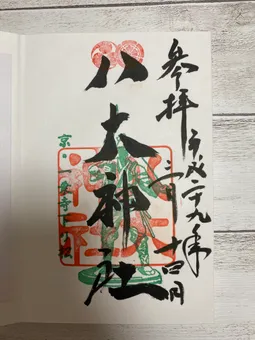 参拝
平成二十九年
二月十四日
八大神社
京・一乗寺